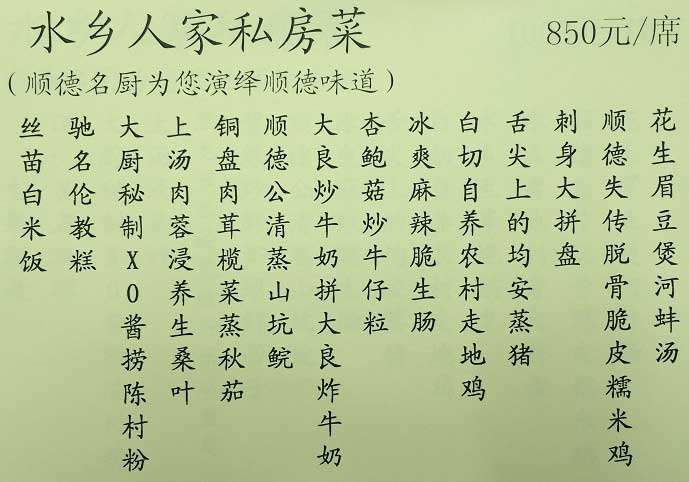 水乡人家私房菜
850元/席
(顺德名厨为您演绎顺德味道)
花生眉豆煲河蚌汤
顺德失传脱骨脆皮糯米鸡
刺身大拼盘
舌尖上的均安蒸猪
白切自养农村走地鸡
冰爽麻辣脆生肠
杏鲍菇炒牛仔粒
大良炒牛奶拼大良炸牛奶
顺德公清蒸山坑鲩
铜盘肉茸榄菜蒸秋茄
上汤肉蓉浸养生桑叶
大厨秘制XO酱捞陈村粉
驰名伦教糕
丝苗白米饭